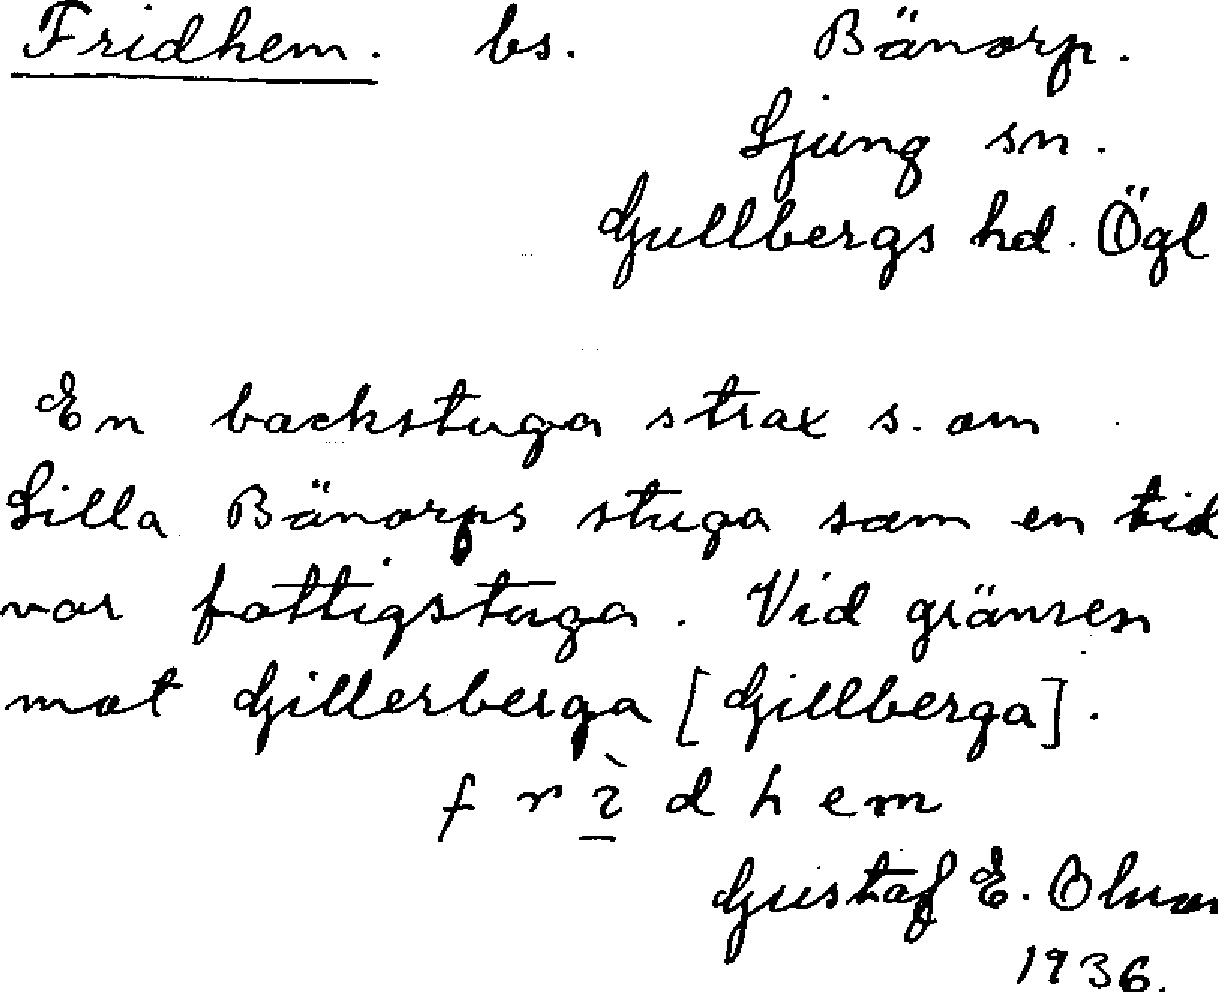 Fridhem. bs. Bänorp.
Ljung sn.
Gullbergs hd. Ögl
En backstuga strax s. om
Lilla Bänorps stuga som en tid
var fattigstuga. Vid gränsen
mot Gillerberga [Gillberga].
f r ì d h em
Gustaf E.
1936.